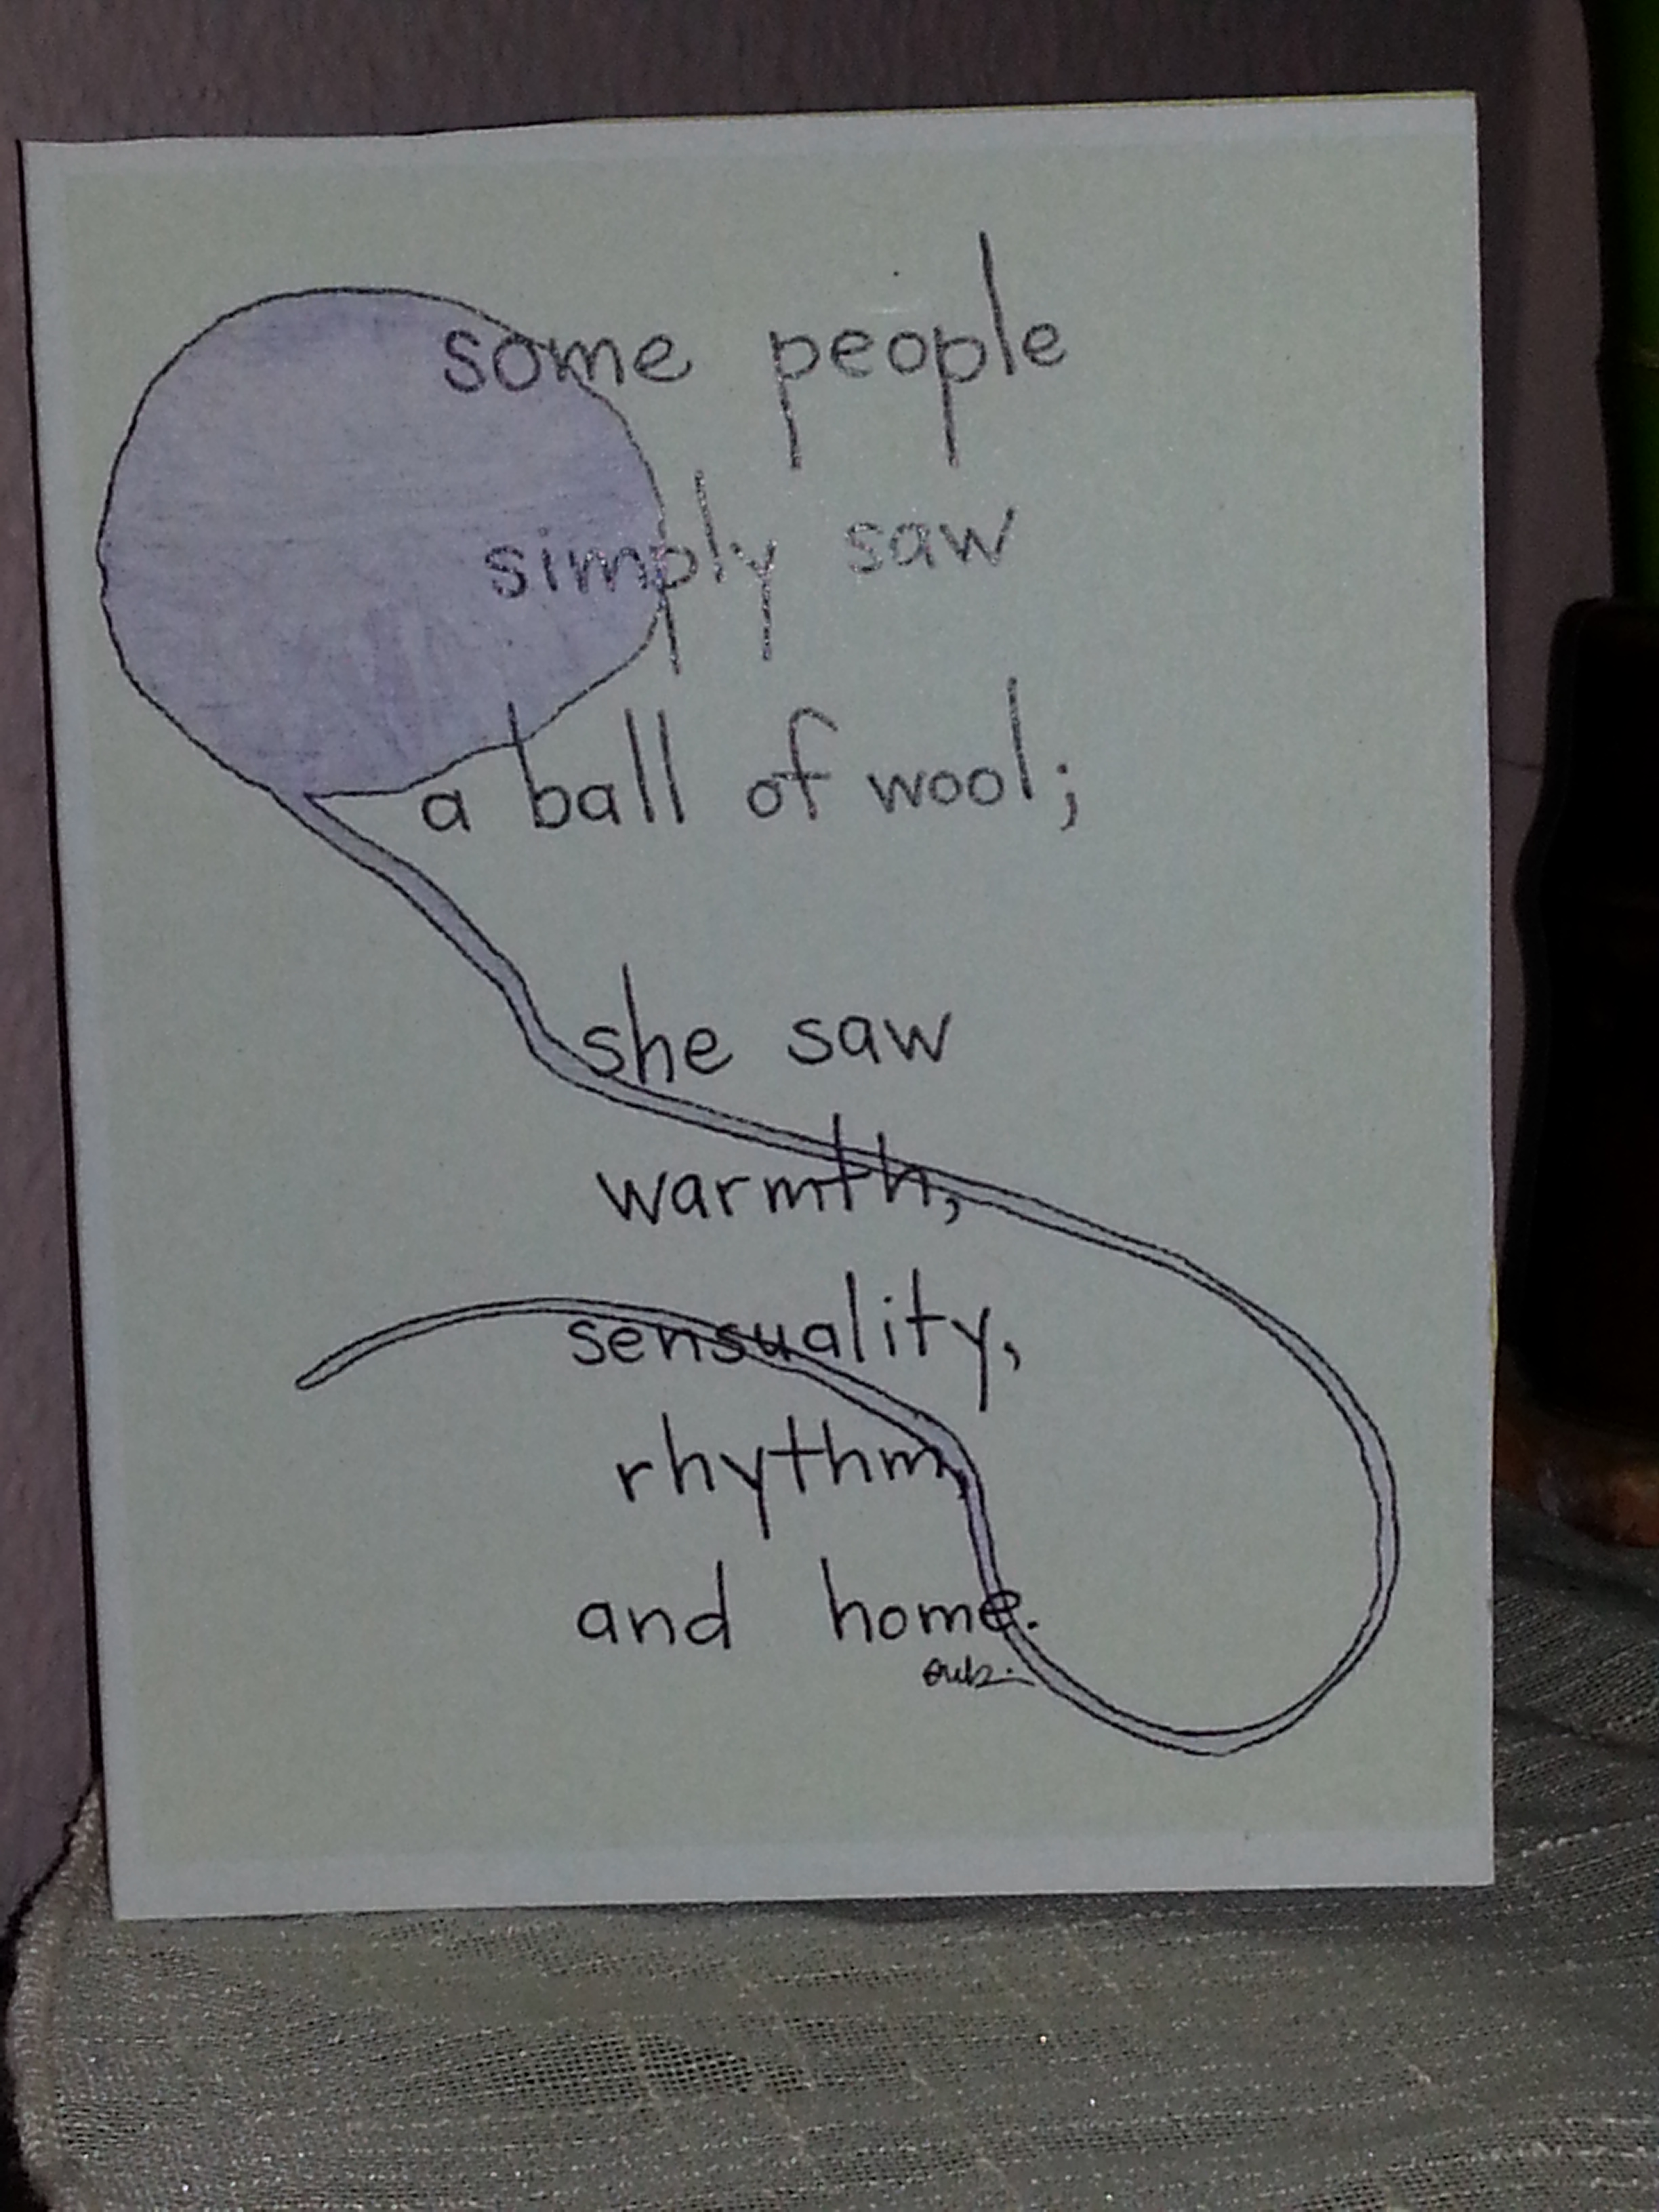 some people
simply saw
a ball of wool;
she saw
warmth,
sensuality,
rhythm,
and home.